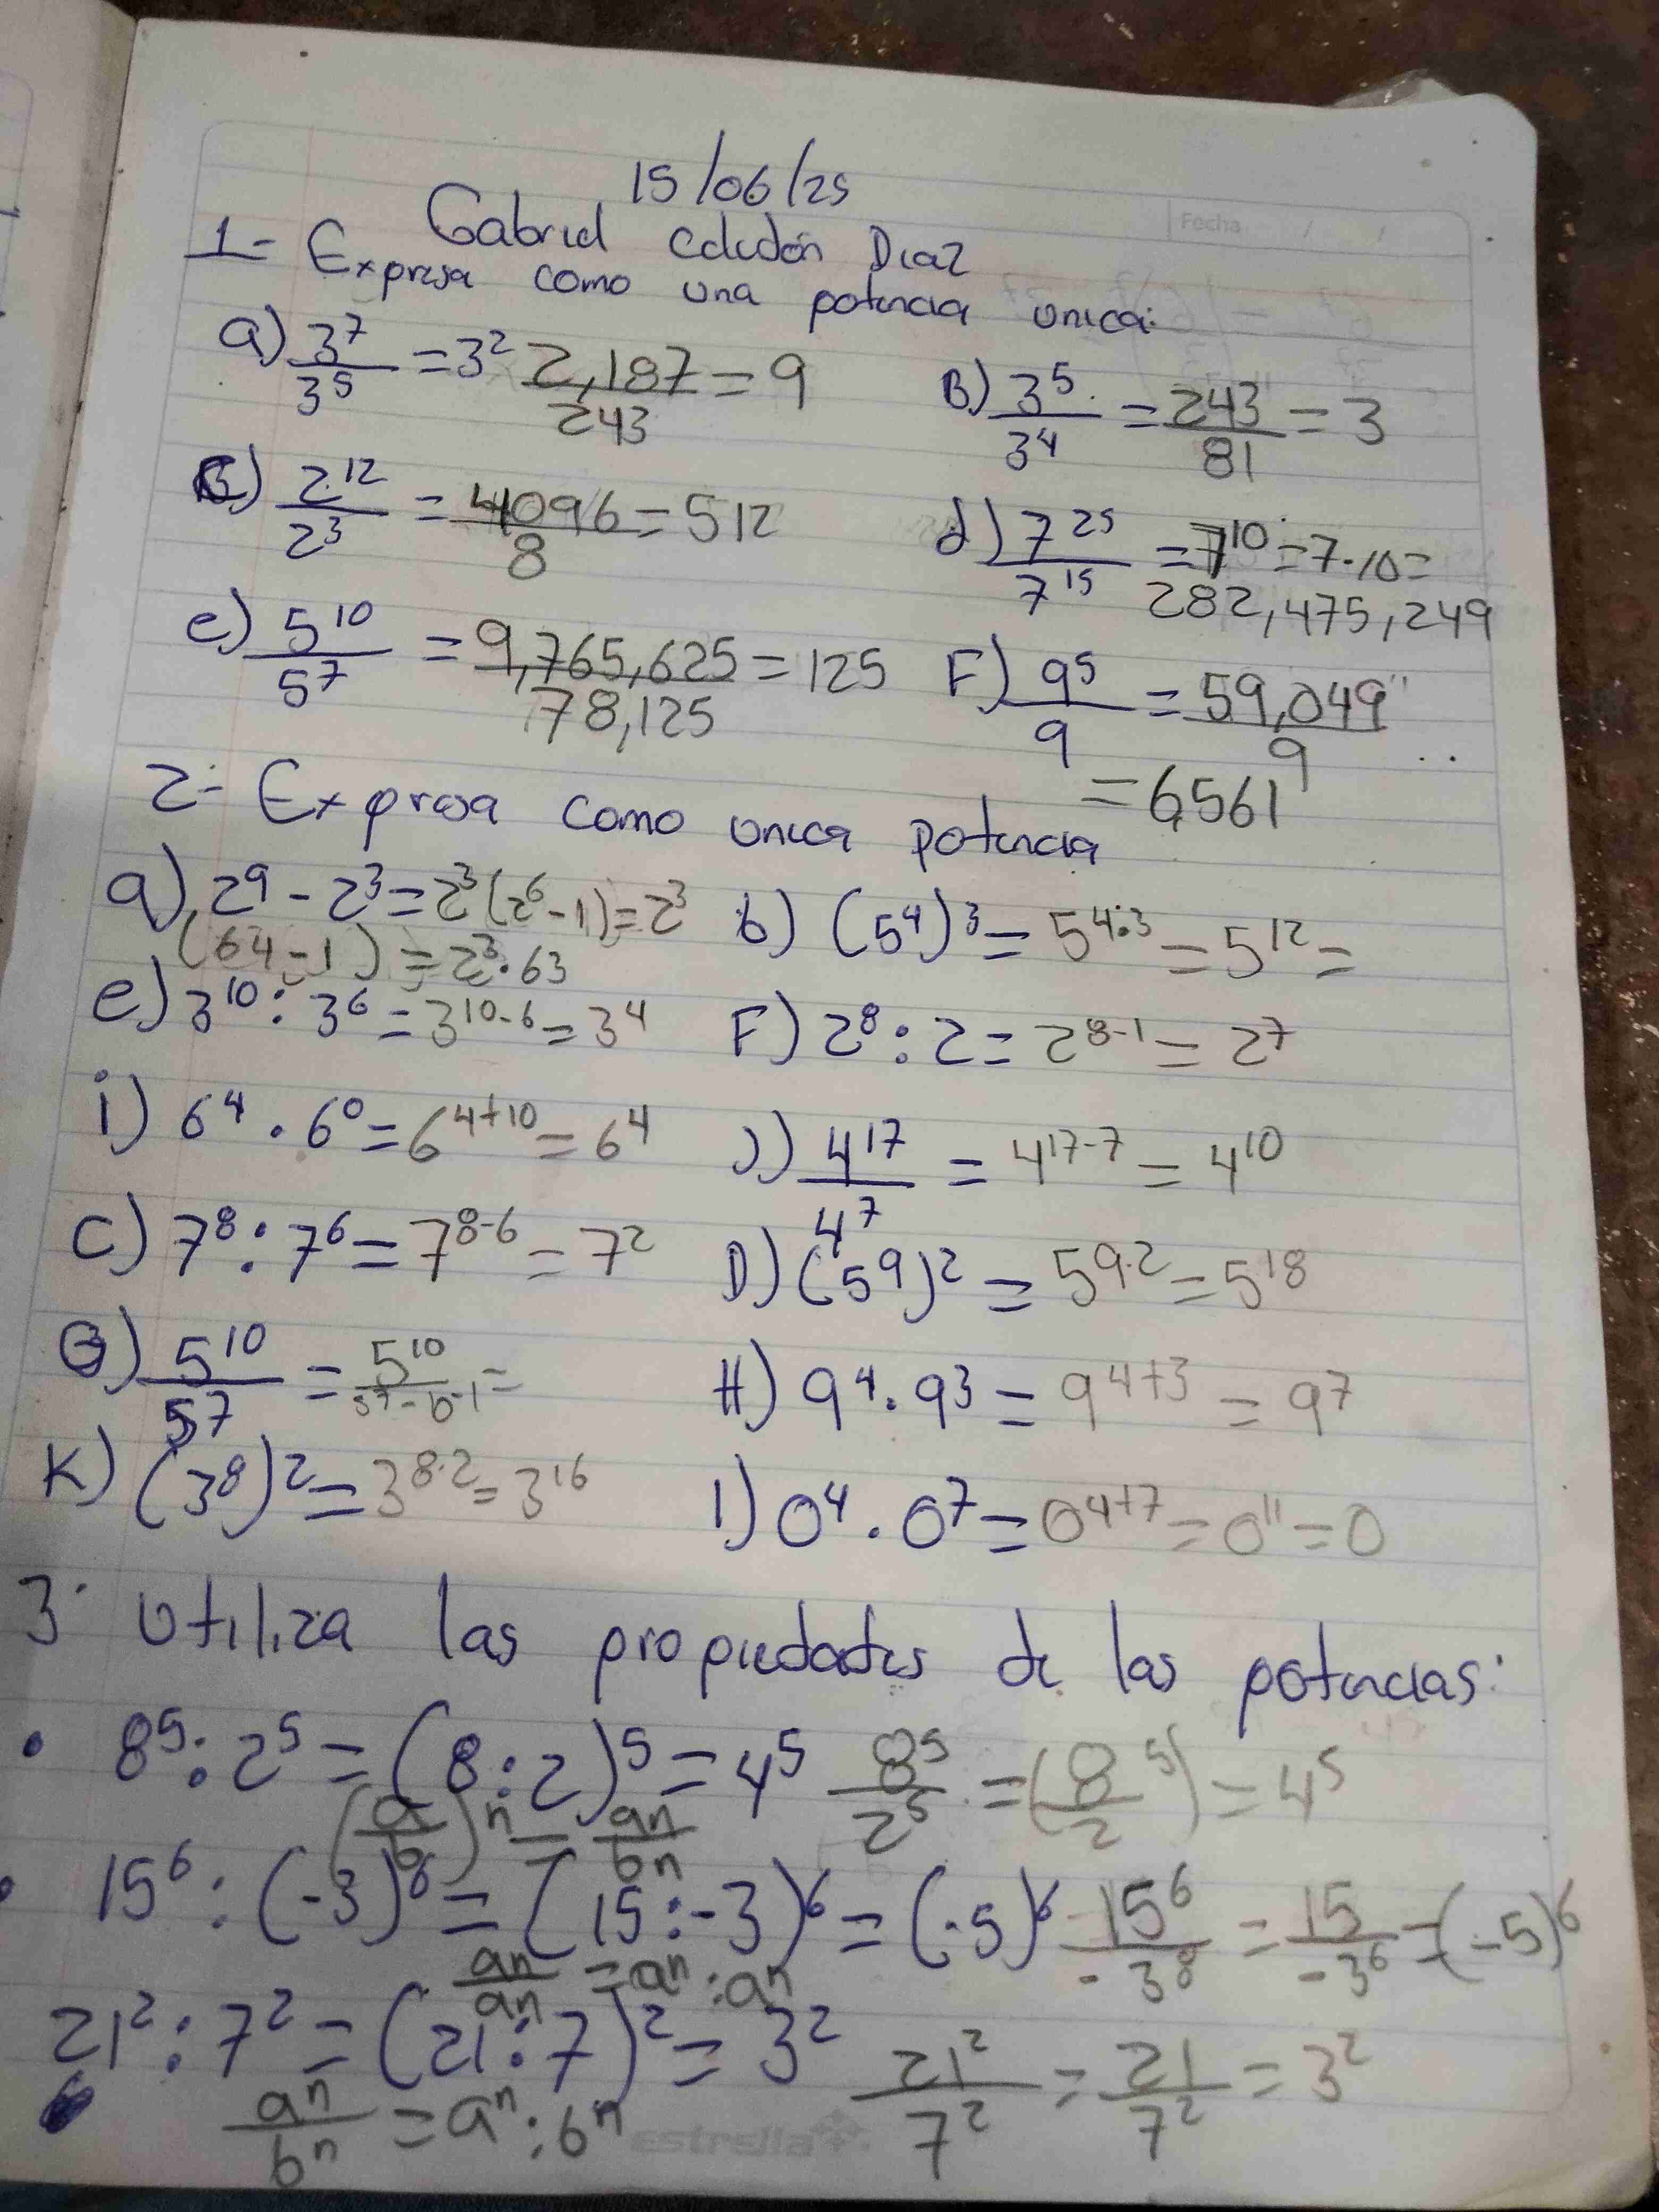 15/06/25
Fecha / /
Gabriel Celedón Díaz
1- Expresa como una potencia unica:
a) 3^7/3^5 = 3^2 2,187/243 = 9
B) 3^5/3^4 = 243/81 = 3
C) 2^12/2^3 = 4096/8 = 512
d) 7^25/7^15 = 7^10 = 7·10 =
282,475,249
e) 5^10/5^7 = 9,765,625/78,125 = 125
F) 9^5/9 = 59,049/9
= 6561
2- Expresa como unica potencia
a) 2^9 - 2^3 = 2^3(2^6 - 1) = 2^3
(64 - 1) = 2^3·63
b) (5^4)^3 = 5^4·3 = 5^12 =
e) 3^10 : 3^6 = 3^10-6 = 3^4
F) 2^8 : 2 = 2^8-1 = 2^7
i) 6^4 · 6^0 = 6^4+10 = 6^4
J) 4^17/4^7 = 4^17-7 = 4^10
C) 7^8 : 7^6 = 7^8-6 = 7^2
D) (5^9)^2 = 5^9·2 = 5^18
G) 5^10/5^7 = 5^10/
H) 9^4 · 9^3 = 9^4+3 = 9^7
K) (3^8)^2 = 3^8·2 = 3^16
l) 0^4 · 0^7 = 0^4+7 = 0^11 = 0
3- Utiliza las propiedades de las potencias:
• 8^5 : 2^5 = (8:2)^5 = 4^5 8^5/2^5 = (8/2^5) = 4^5
(a/b)^n = an/bn
• 15^6 : (-3)^6 = (15:-3)^6 = (-5)^6 15^6/-3^8 = 15/-3^6 = (-5)^6
an/an = a^n : a^n
21^2 : 7^2 = (21:7)^2 = 3^2 21^2/7^2 = 21/7^2 = 3^2
a^n/b^n = a^n : b^n
estrella